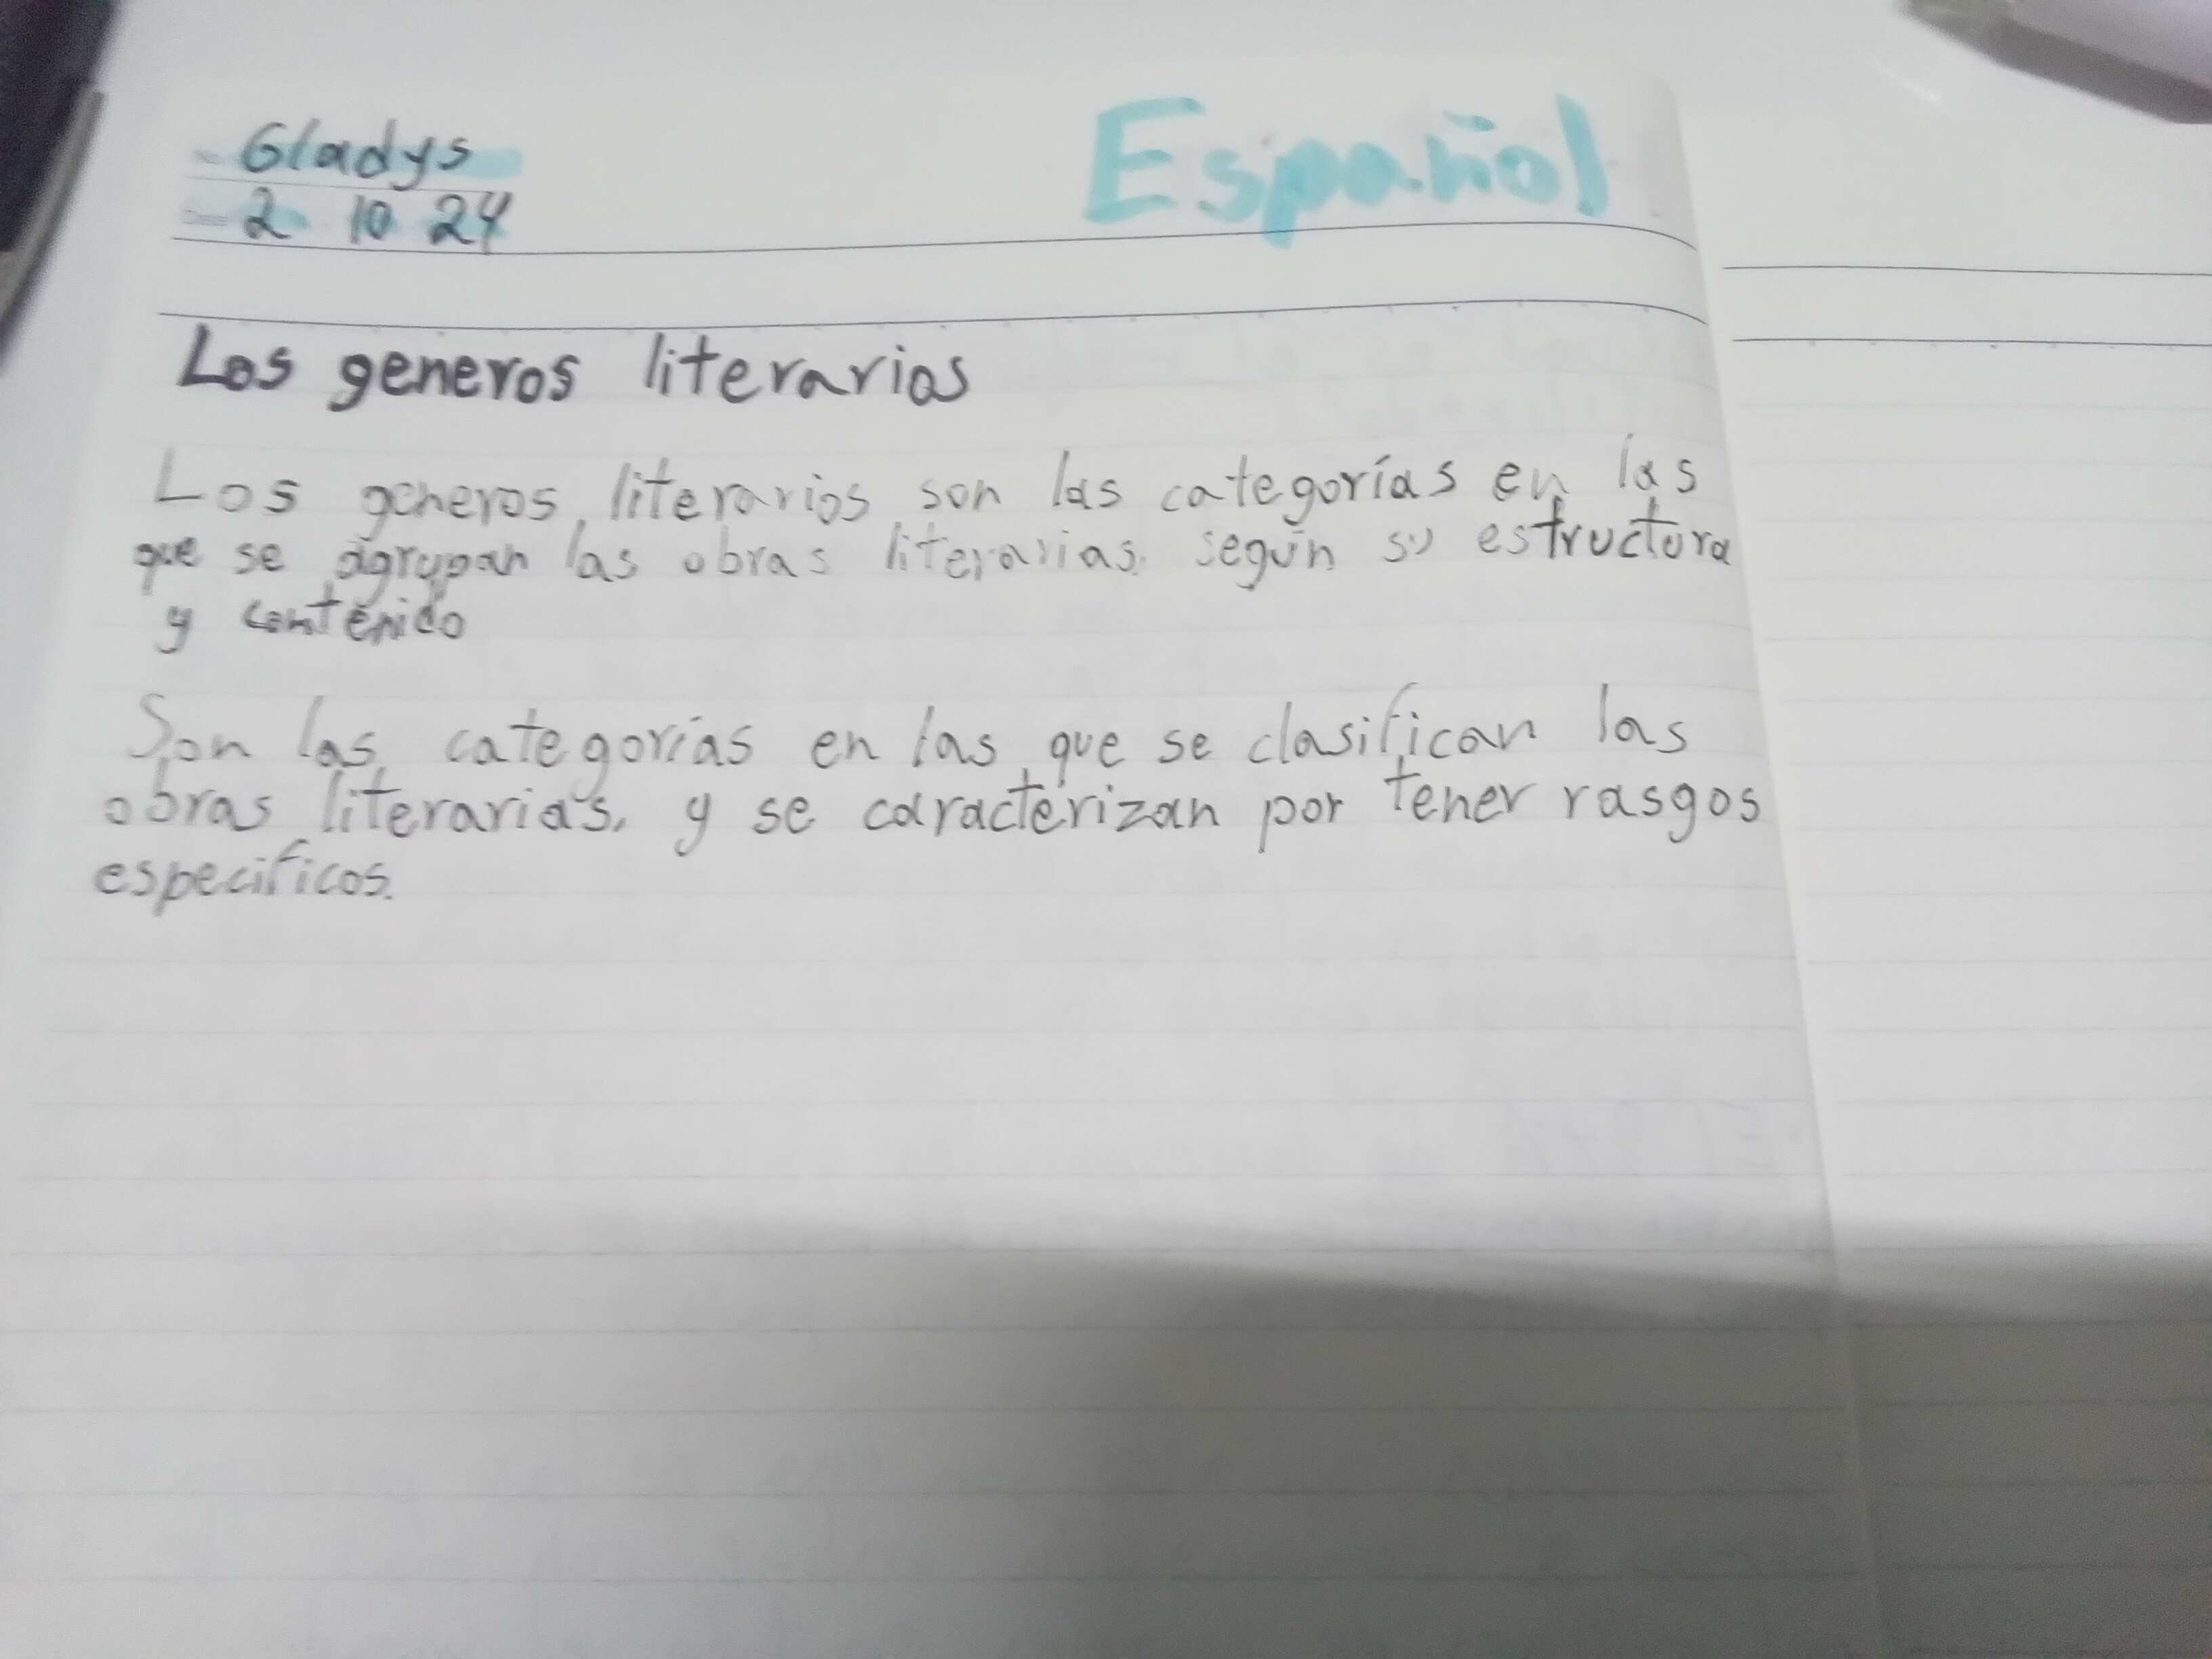 Gladys
Español
2 10 24
Los generos literarios
Los generos literarios son las categorías en las
que se agrupan las obras literarias, según su estructura
y contenido
Son las categorías en las que se clasifican las
obras literarias, y se caracterizan por tener rasgos
especificos.